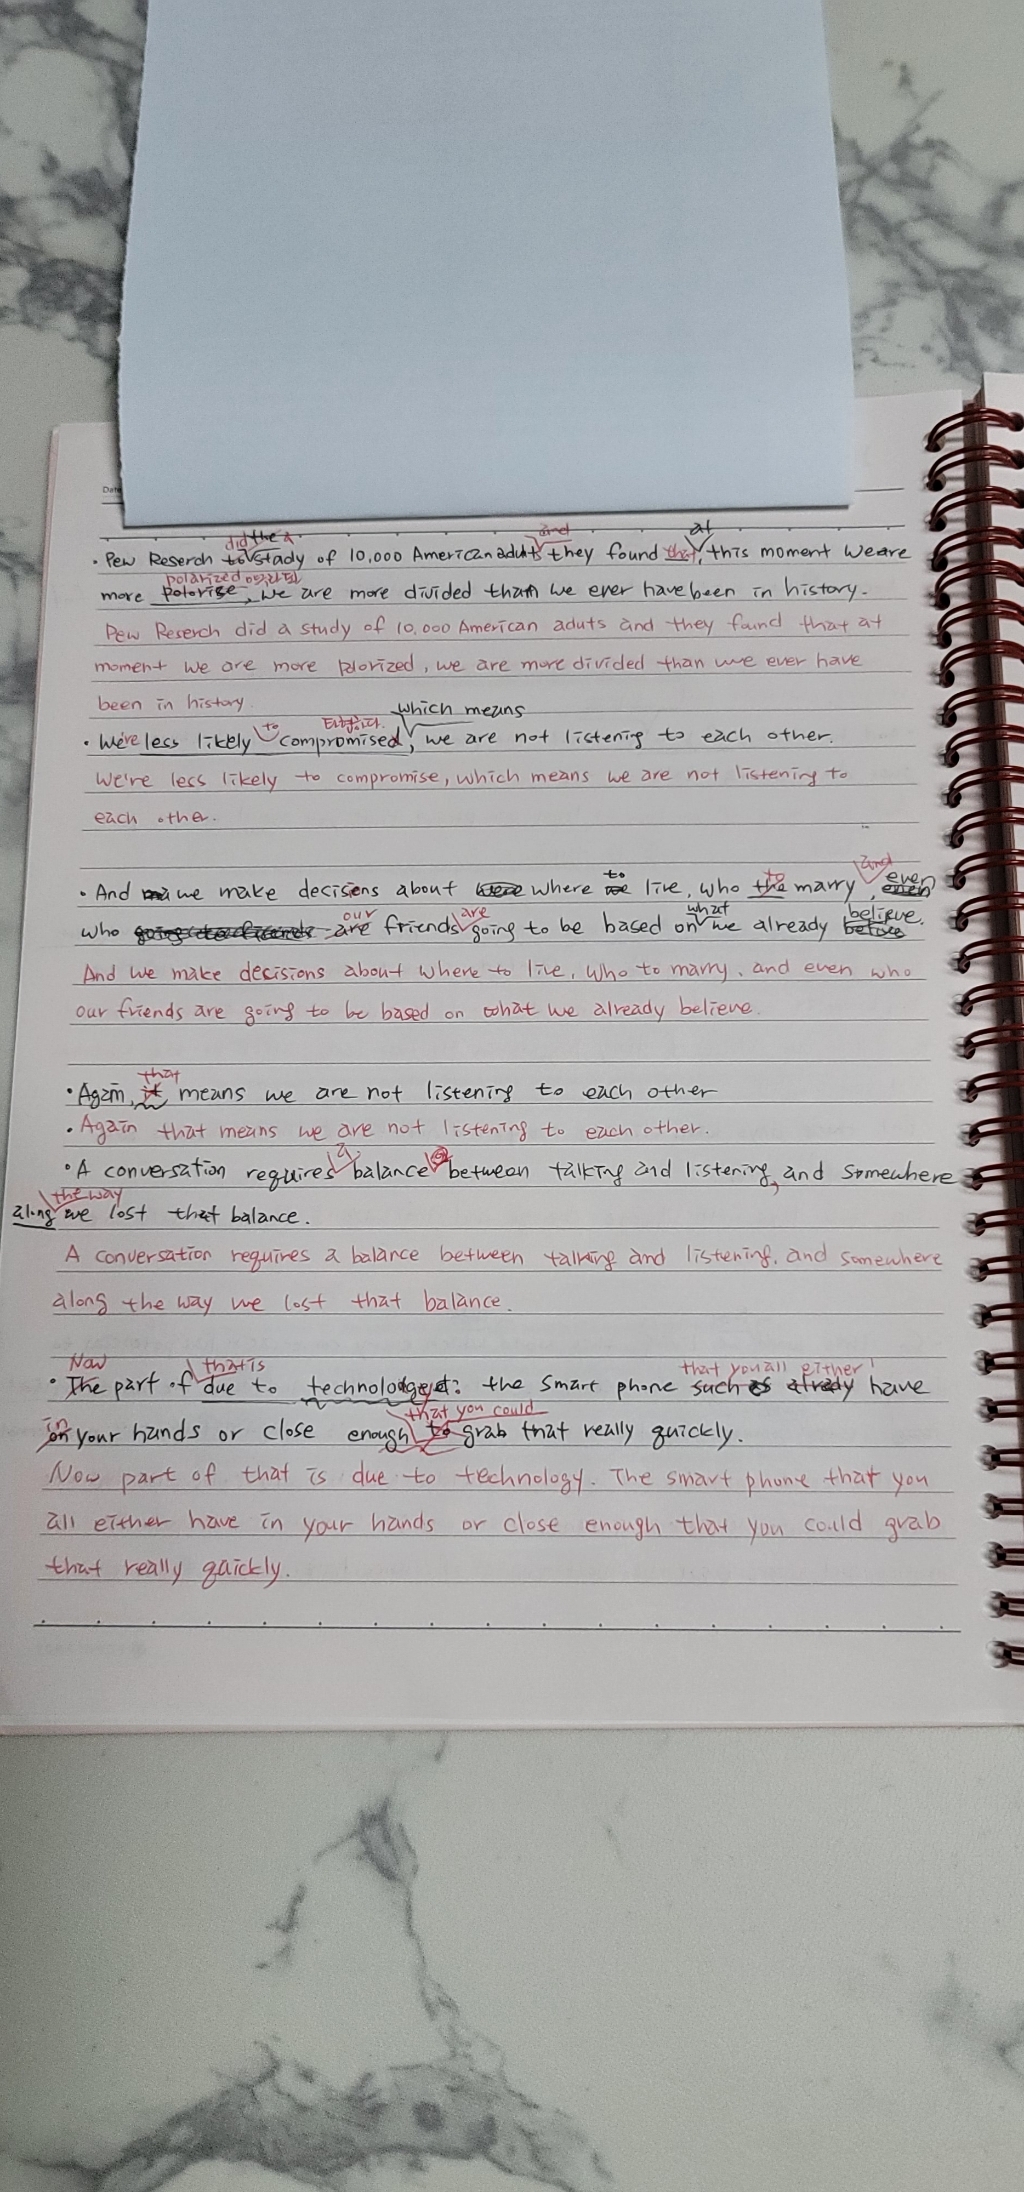 Date
did the a and at
· Pew Reserch to stady of 10,000 American adults they found that, this moment we are
polarized
more polorise, we are more divided tham we ever have been in history.
Pew Reserch did a study of 10,000 American aduts and they found that at
moment we are more plorized, we are more divided than we ever have
been in history.
which means
to 타협하다.
· We're less likely compromised, we are not listening to each other.
We're less likely to compromise, which means we are not listening to
each other.
to to and even
· And we make decisions about where live, who the marry,
our are what believe.
who are friends going to be based on we already before
And we make decisions about where to live, who to marry, and even who
our friends are going to be based on what we already believe.
that
· Again, it means we are not listening to each other
· Again that means we are not listening to each other.
a
· A conversation requires balance between talking and listening, and somewhere
the way
along we lost that balance.
A conversation requires a balance between talking and listening, and somewhere
along the way we lost that balance.
Now that is that you all either
· The part of due to technology: the smart phone such as alrady have
in that you could
on your hands or close enough to grab that really quickly.
Now part of that is due to technology. The smart phone that you
all either have in your hands or close enough that you could grab
that really quickly.